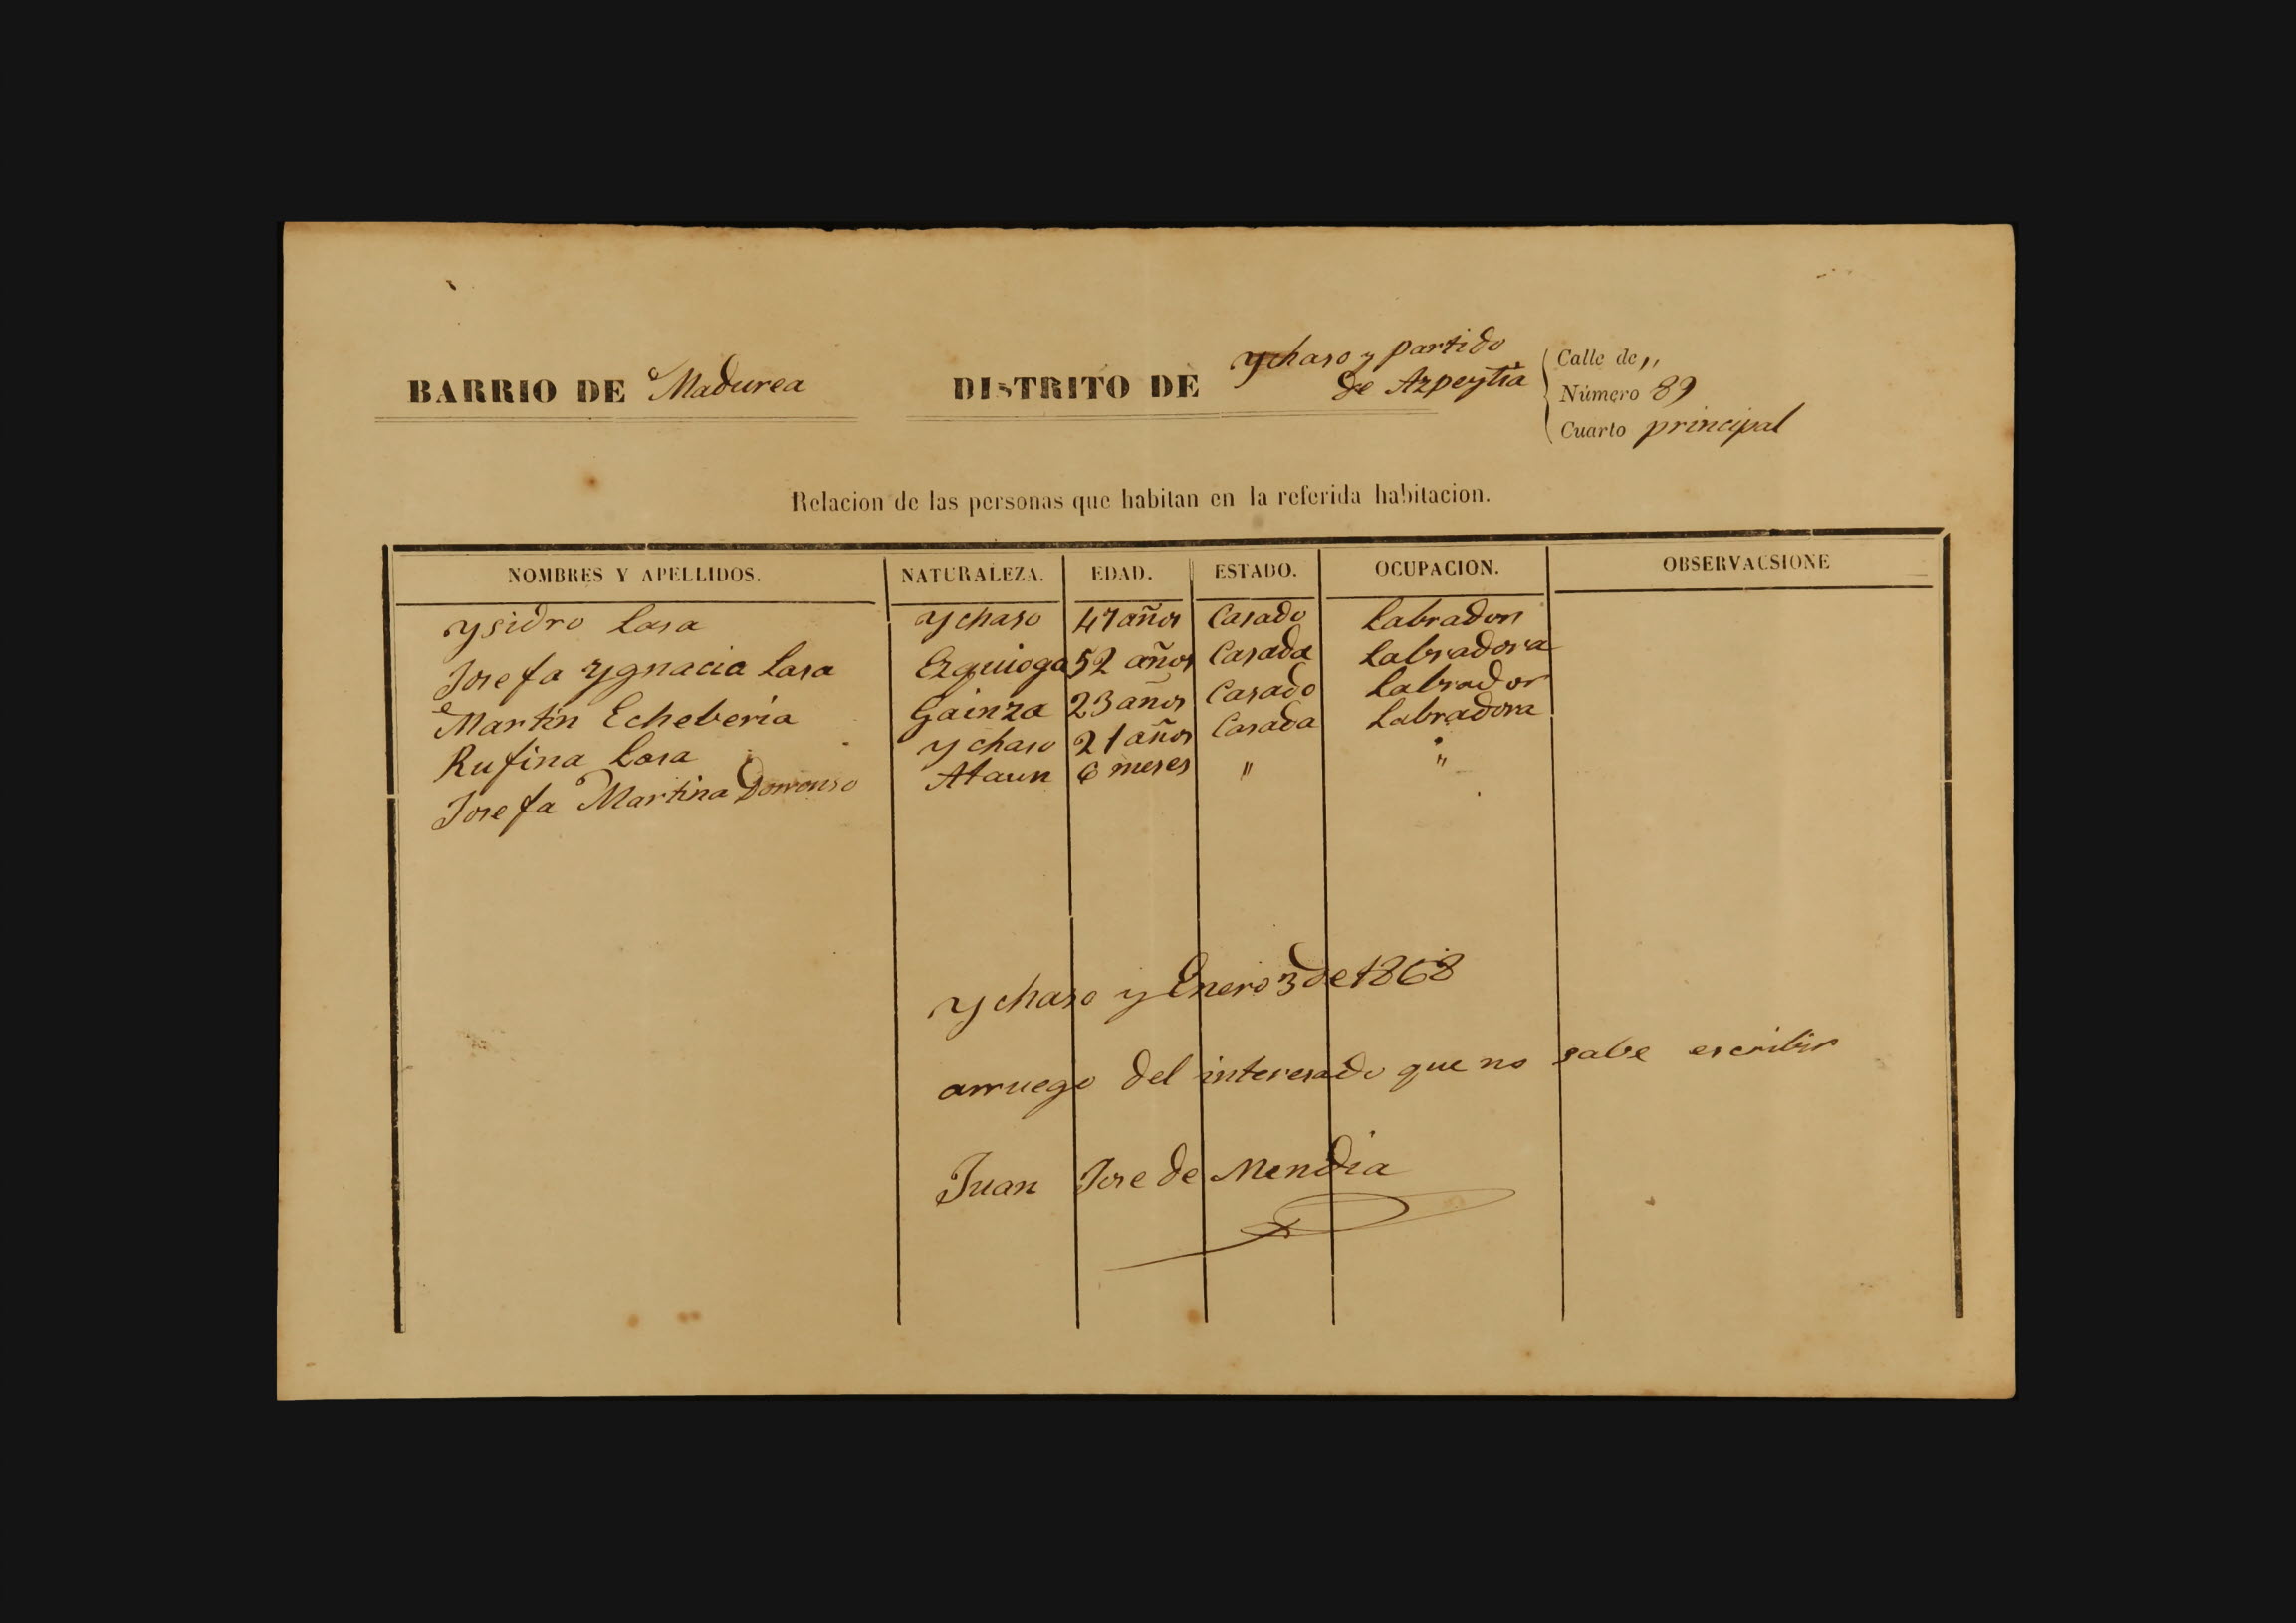 BARRIO DE Madurea DISTRITO DE Ychaso y partido
de Azpeytia
Calle de „
Número 89
Cuarto principal
Relacion de las personas que habitan en la referida habitacion.
NOMBRES Y APELLIDOS. NATURALEZA. EDAD. ESTADO. OCUPACION. OBSERVACSIONE
Ysidro Lasa Ychaso 47 años Casado Labrador
Josefa Ygnacia Lasa Ezquioga 52 años Casada Labradora
Martin Echeberia Gainza 23 años Casado Labrador
Rufina Lasa Ychaso 21 años Casada Labradora
Josefa Martina Ataun 6 meses " "
Ychaso y Enero 3 de 1868
arruego del interesado que no sabe escribir
Juan Jose de Mendia